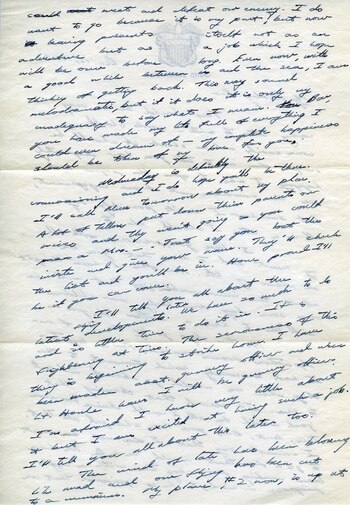 could not meet and defeat our enemy. I do
want to go because it is my part, but now
leaving presents itself not as an
adventure but as a job which I hope
will be over before long. Even now, with
a good while between us and the sea, I am
thinking of getting back. This may sound
melodramatic but if it does it is only my
inadequacy to say what I mean. Bar,
you have made my life full of everything I
could ever dream of — My complete happiness
should be token of my love for you.
Wednesday is definitely the
commissioning and I do hope you'll be there.
I'll call Mom tomorrow about my plan.
A lot of fellows put down their parents or
wives and they aren't going so you could
pass as a Mrs. — Just say you lost the
invite and give your name. They'll check
the list and you'll be in. How proud I'll
be if you can come.
I'll tell you all about the
latest developments. We have so much to do
and so little time to do it in. It is
frightening at times. The seriousness of this
thing is beginning to strike home. I have
been made asst. gunnery officer and when
Lt. Houle leaves I will be gunnery officer.
I'm afraid I know very little about
it but I am excited at having such a job.
I'll tell you all about this later too.
The wind of late has been blowing
like mad and our flying has been cut
to a minimum. My plane, #2 now, is up at